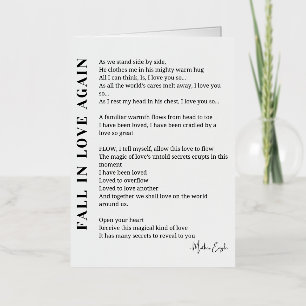 FALL IN LOVE AGAIN
As we stand side by side,
He clothes me in his mighty warm hug
All I can think, Is, I love you so...
As all the world's cares melt away, I love you
so...
As I rest my head in his chest, I love you so...
A familiar warmth flows from head to toe
I have been loved, I have been cradled by a
love so great
FLOW, I tell myself, allow this love to flow
The magic of love's untold secrets erupts in this
moment
I have been loved
Loved to overflow
Loved to love another
And together we shall love on the world
around us.
Open your heart
Receive this magical kind of love
It has many secrets to reveal to you